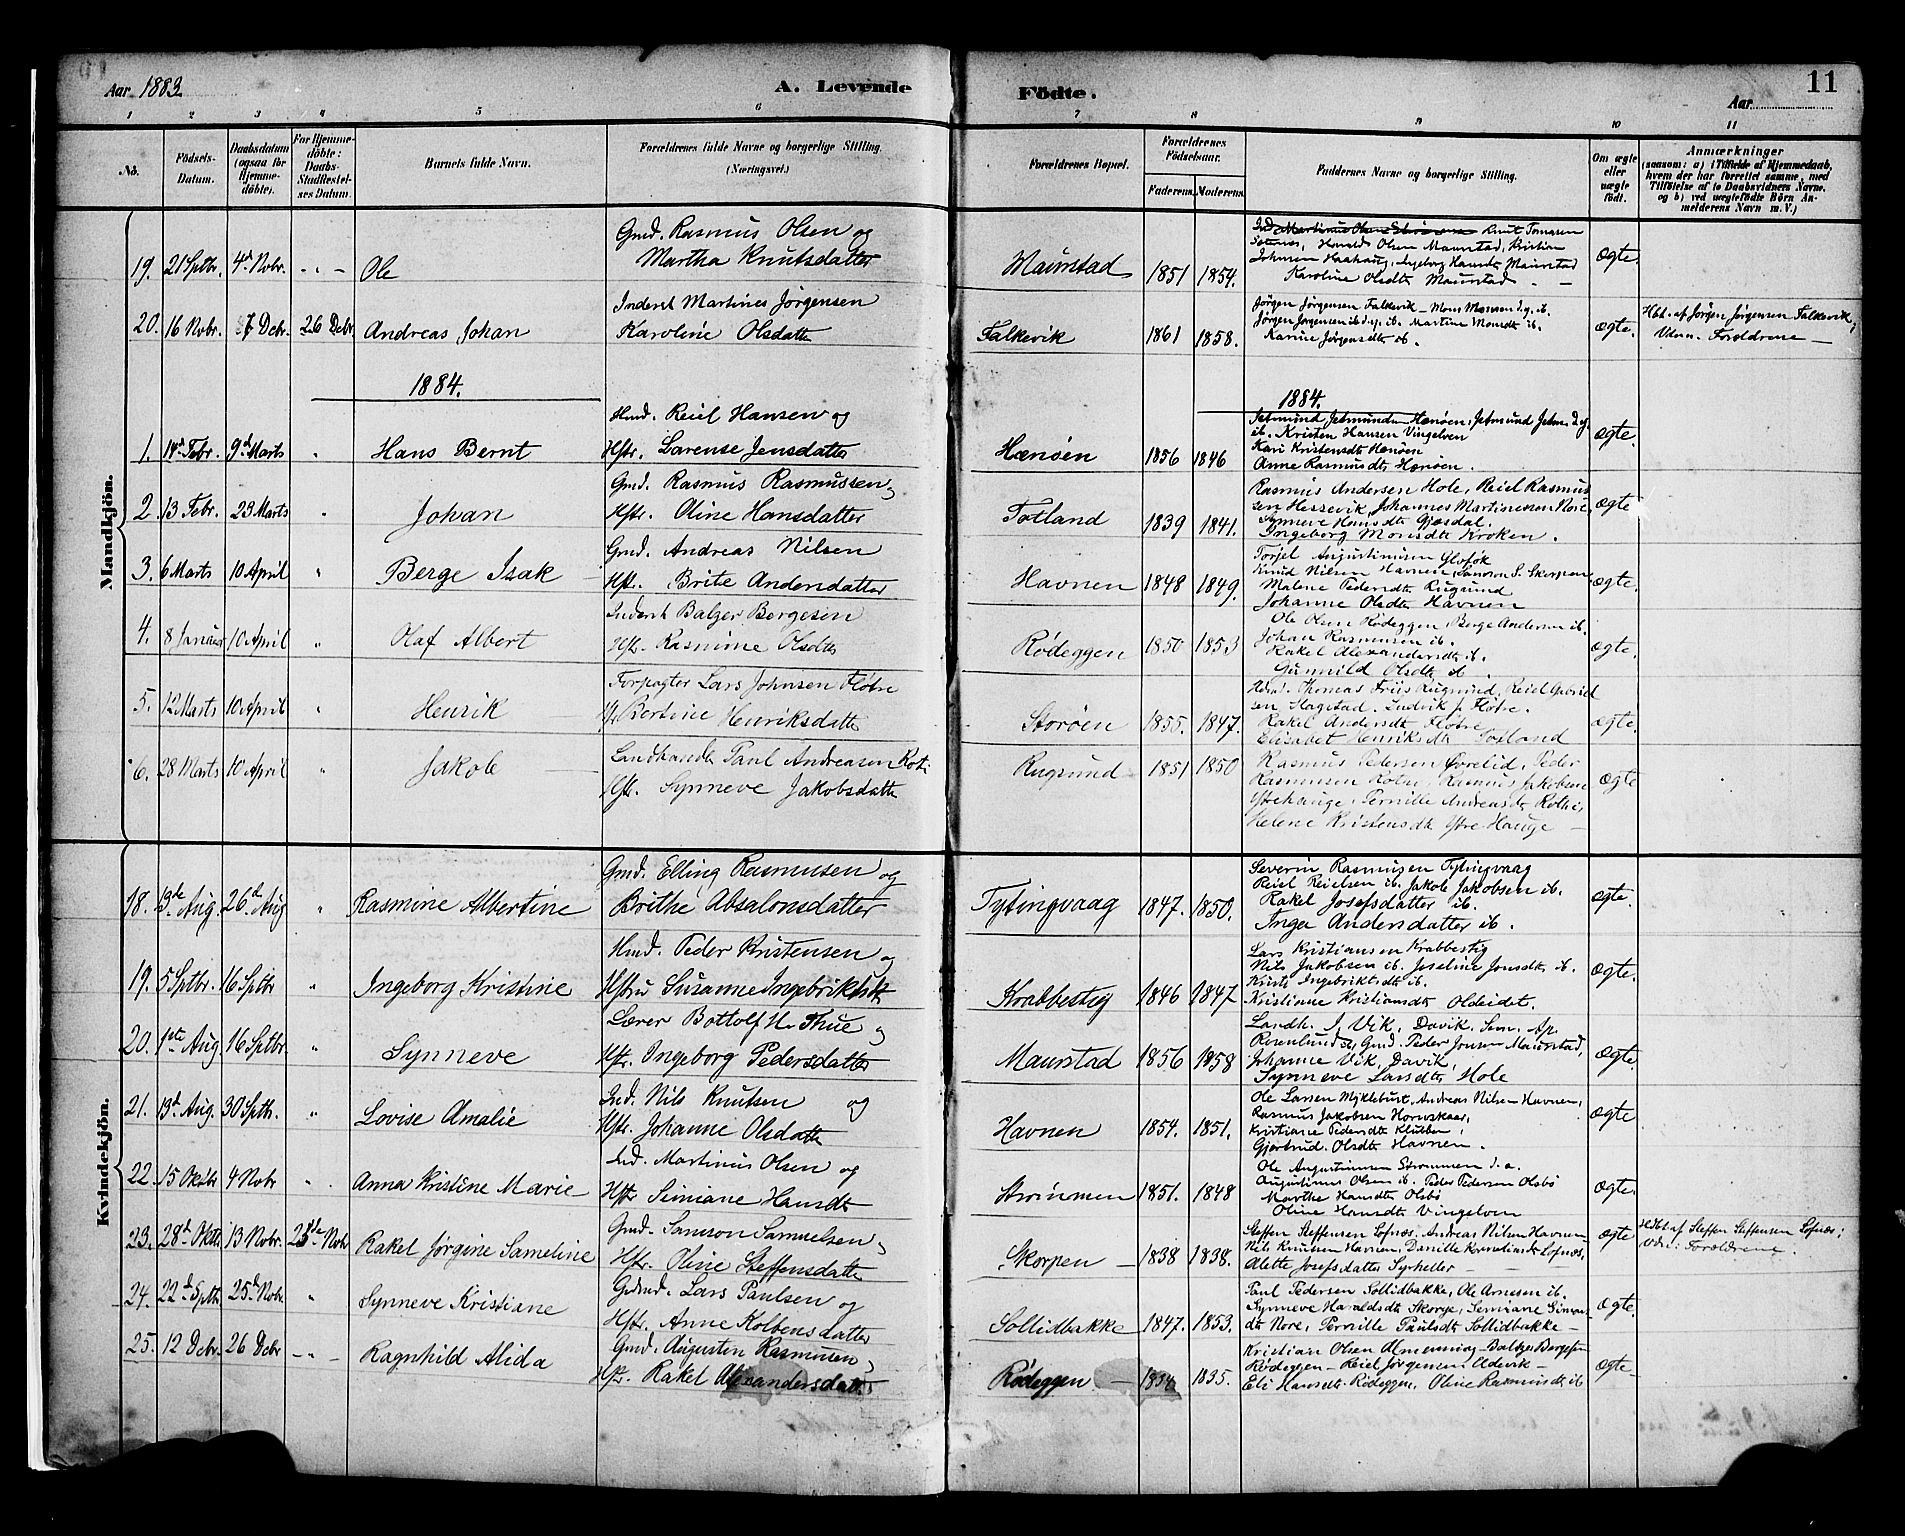 Aar 1883 A. Levende Födte. Aar 11
1 2 3 4 5 6 7 8 9 10 11
No. Födsels-Datum. Daabsdatum (ogsaa for Hjemmedöbte). For Hjemmedöbte: Daabs Stadfæstelses Datum. Barnets fulde Navn. Forældrenes fulde Navne og borgerlige Stilling. (Næringsvei.) Forældrenes Bopæl. Forældrenes Födselsaar. Faderens. Moderens. Faddernes Navne og borgerlige Stilling. Om ægte eller uægte födt. Anmærkninger (saasom: a) i Tilfælde af Hjemmedaab, hvem der har forrettet samme, med Tilföielse af to Daabsvidners Navne, og b) ved uægtefödte Börn Anmelderens Navn m. V.)
Mandkjön.
19. 21 Sptbr. 4d Nobr. Ole Gmd. Rasmus Olsen og
Martha Knutsdatter Maurstad 1851 1854. Knut Tomasen
Harald Olsen Maurstad, Kristian
Johnsen Ingeborg Hansdt Maurstad
Karoline Olsdt Maurstad ægte.
20. 16 Nobr. 7 Debr. 26 Debr. Andreas Johan Inderst Martines Jörgensen
Karoline Olsdatte Falkevik 1861 1858. Jörgen Jörgensen Falkevik - Mons Monsen d.y. ib.
Jörgen Jörgensen ib d.y. ib. Martine Monsdt ib.
Karine Jörgensdt ib. ægte. Hbt. af Jörgen Jörgensen Falkevik,
Vidn. Forældrene
1884. 1884.
1. 14d Febr. 9d Marts Hans Bernt Hmd. Reiel Hansen og
Hstr. Lorense Jensdatter Hænöen 1856 1846 Jetmund Jetmundsen Hænöen, Jetmund Jetm. d.y.
ib. Kristen Hansen Vingelven
Kari Kristensdt Hænöen
Anne Rasmusdt Hænöen. ægte.
2. 13 Febr. 23 Marts Johan Gmd. Rasmus Rasmussen
Hstr. Oline Hansdatter Totland 1839 1841. Rasmus Andersen Hole, Reiel Rasmus
sen Hessevik, Johannes Martinesen Nore,
Synneve Hansdt Gjæsdal.
Ingeborg Monsdt Kroken. ægte
3. 6 Marts 10 April Berge Isak Gmd. Andreas Nilsen
Hst. Brite Andersdatter Havnen 1848 1849. Torjel Augustinusen
Knud Nilsen Havnen, Samson S. Skorpen
Malene Pedersdt Rugsund
Johanne Olsdt Havnen ægte.
4. 8 Januar 10 April Olaf Albert Inderst Balzer Bergesen
Hstr. Rasmine Olsdtr Rödeggen 1850 1853 Ole Olsen Rödeggen, Berge Andersen ib.
Johan Rasmusen ib.
Rakel Alexandersdt ib.
Gunnild Olsdt ib. ægte.
5. 12 Marts 10 April Henrik Forpagter Lars Johnsen Flöbre
Bertine Henriksdatte Storöen 1855. 1847. Thomas Friis Rugsund, Reiel Gabriel
sen Hagestad. Ludvik J. Flöbre.
Rakel Andersdt Flöbre
Elisabet Henriksdt Totland ægte.
6. 28 Marts 10 April Jakob Landhandl. Paul Andreasen
Hstr. Synneve Jakobsdatte Rugsund 1851 1850 Rasmus Pedersen Övrelid, Peder
Rasmussen Rotne, Rasmus Jakobsen
Ytrehauge, Pernille Andreasdt Rothe,
Helene Kristensdt Ytre Hauge ægte
Kvindekjön.
18. 13de Aug. 26d Aug Rasmine Albertine Gmd. Elling Rasmusen og
Brithe Absalonsdatter Tytingvaag 1847. 1850. Severin Rasmusen Tytingvaag
Reiel Reielsen ib. Jakob Jakobsen ib.
Rakel Josefsdatter ib.
Inga Andersdatter ib. ægte.
19. 5 Sptbr. 16 Sptbr Ingeborg Kristine Hmd. Peder Kristensen og
Hstru Susanne Ingebriktsdt Krabbestig 1846 1847 Lars Kristiansen Krabbestig
Nils Jakobsen ib. Joseline Jonsdt ib.
Ingebriktsdt ib.
Kristianne Kristiansdt Oldeidet. ægte.
20. 1ste Aug 16 Sptbr. Synneve Lærer Bottolf H. Thue og
Hstr. Ingeborg Pedersdatter Maurstad 1856 1858 Landh. J. Vik, Davik, Sem. Ap.
Rosenlund, Gmd. Peder Jonsen Maurstad,
Johanne Vik, Davik,
Synneve Larsdt Hole ægte.
21. 13d Aug. 30 Sptb. Lovise Amalie Ind. Nils Knutsen og
Hstr. Johanne Olsdatte Havnen 1854. 1851. Ole Larsen Myklebust, Andreas Nilsen Havnen,
Rasmus Jakobsen Hornskaar,
Kristiane Pedersdt Klubben,
Gjertrud Olsdt Havnen. ægte
22. 15 Oktbr 4 Nobr Anna Kristine Marie Ind. Martinus Olsen og
Hstr Simiane Hansdt Strömmen 1851. 1848 Ole Augustinusen Strömmen d.æ.
Augustinus Olsen ib. Peder Pedersen Olsbö
Marthe Hansdt Olsbö
Oline Hansdt Vingelven ægte.
23. 28d Oktr. 13 Nobr. 23de Nobr Rakel Jörgine Sameline Gmd. Samson Samuelsen
Hstr. Oline Steffensdatte Skorpen 1838 1838. Steffen Steffensen Lofnæs, Andreas Nilsen Havnen
Nils Knutsen Havnen, Danille Korneliusdt Lofnæs,
Alette Josefsdatter Syrheller ægte Hdbt af Steffen Steffensen Lofnæs;
Vdn: Forældrene.
24. 22d Sptb. 25d Nobr Synneve Kristiane Gdmd. Lars Paulsen og
Hstr. Anne Kolbensdatter Sollidbakke 1847. 1853. Paul Pedersen Sollidbakke, Ole Arnesen ib.
Synneve Haraldsdt Skorge, Semiane Simons
dt Nore, Pernille Paulsdt Sollidbakke ægte
25. 12 Debr. 26 Debr Ragnhild Alida Gmd. Augustin Rasmusen
Hstr. Rakel Alexandersdatt. Rödeggen 1834 1835. Kristian Olsen Almenning - Balzer Bergesen
Rödeggen - Reiel Jörgensen Aldevik -
Eli Hansdt Rödeggen, Oline Rasmusdt ib ægte